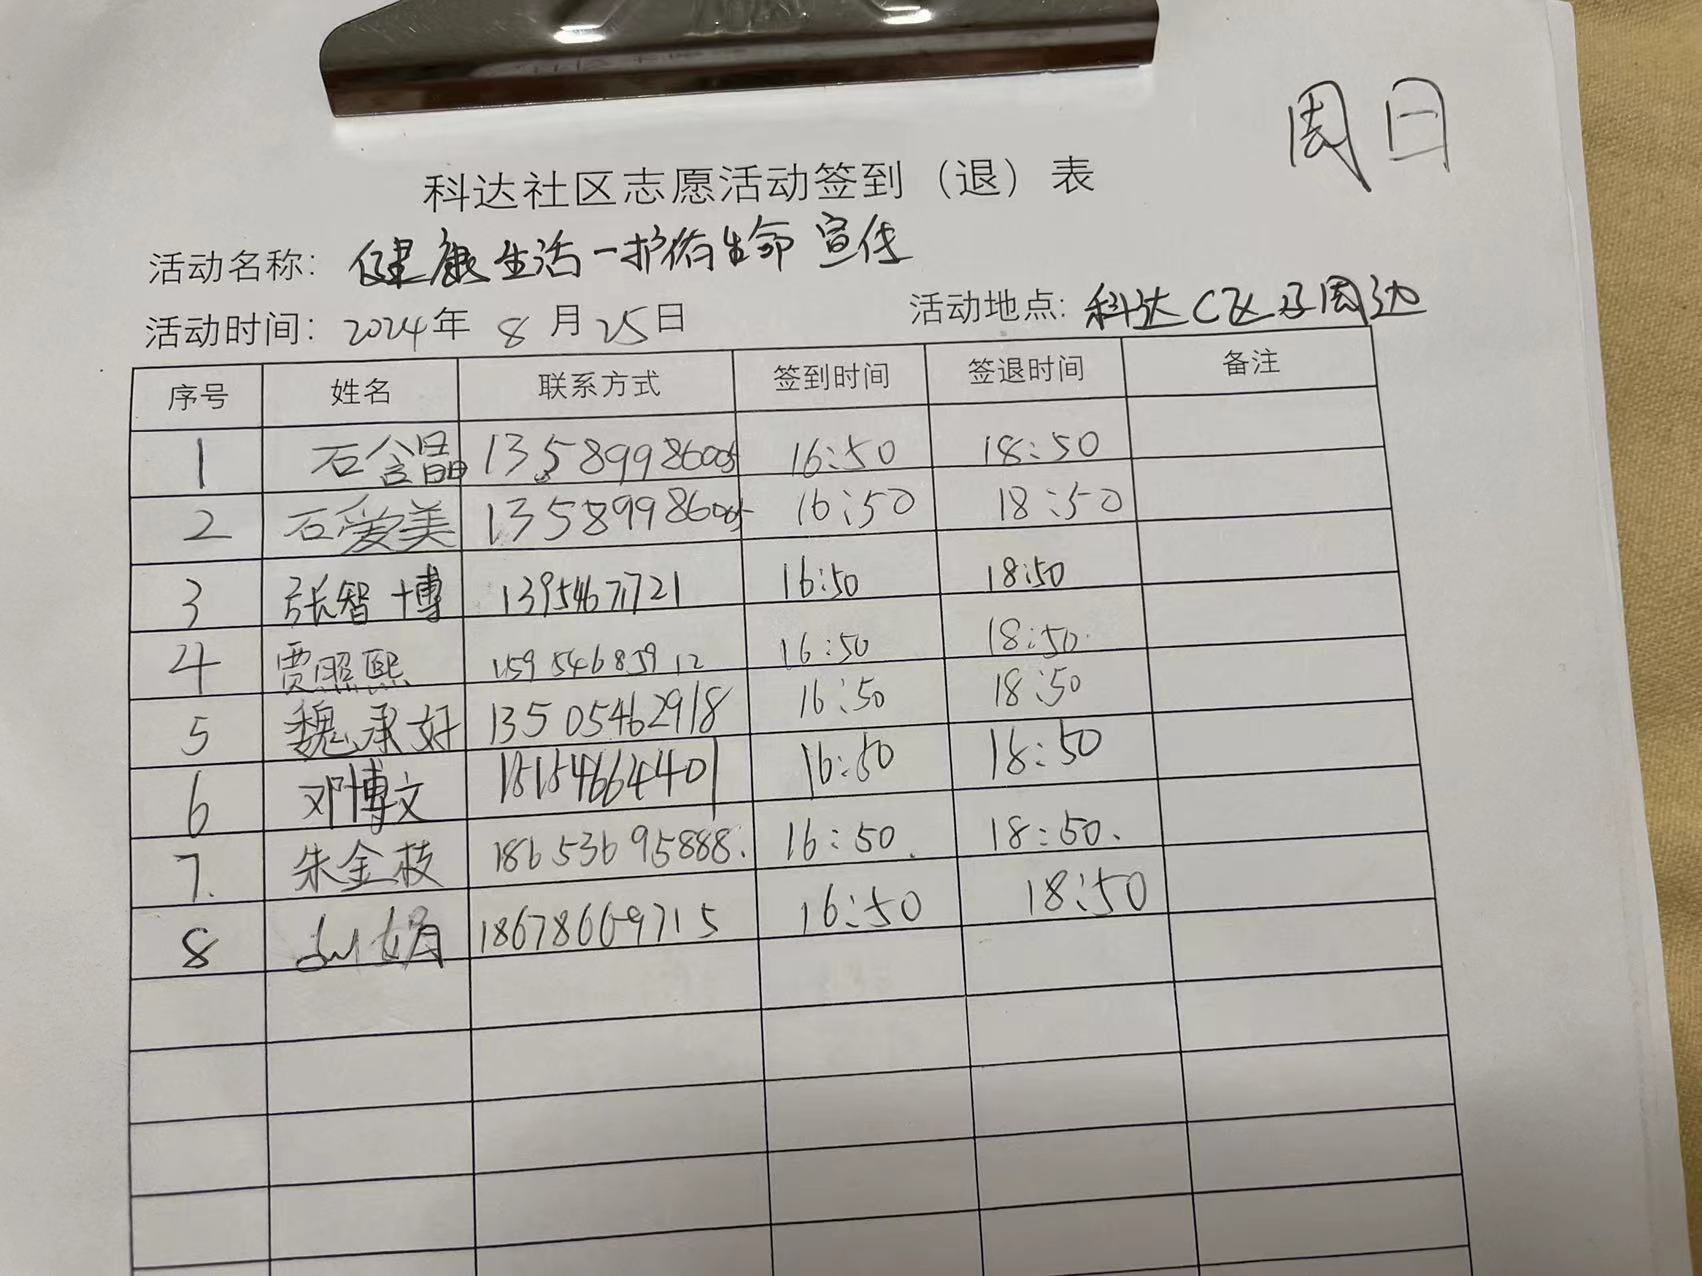 周日
科达社区志愿活动签到（退）表
活动名称：健康生活一护佑生命宣传
活动时间：2024年 8月25日 活动地点：科达C区及周边
序号 姓名 联系方式 签到时间 签退时间 备注
1 石含晶 16:50 18:50
2 石爱美 16:50 18:50
3 张智博 16:50 18:50
4 贾照熙 15954683912 16:50 18:50
5 魏承好 13505462918 16:50 18:50
6 邓博文 16:50 18:50
7. 朱金枝 18653695888. 16:50. 18:50.
8 娟 18678669715 16:50 18:50